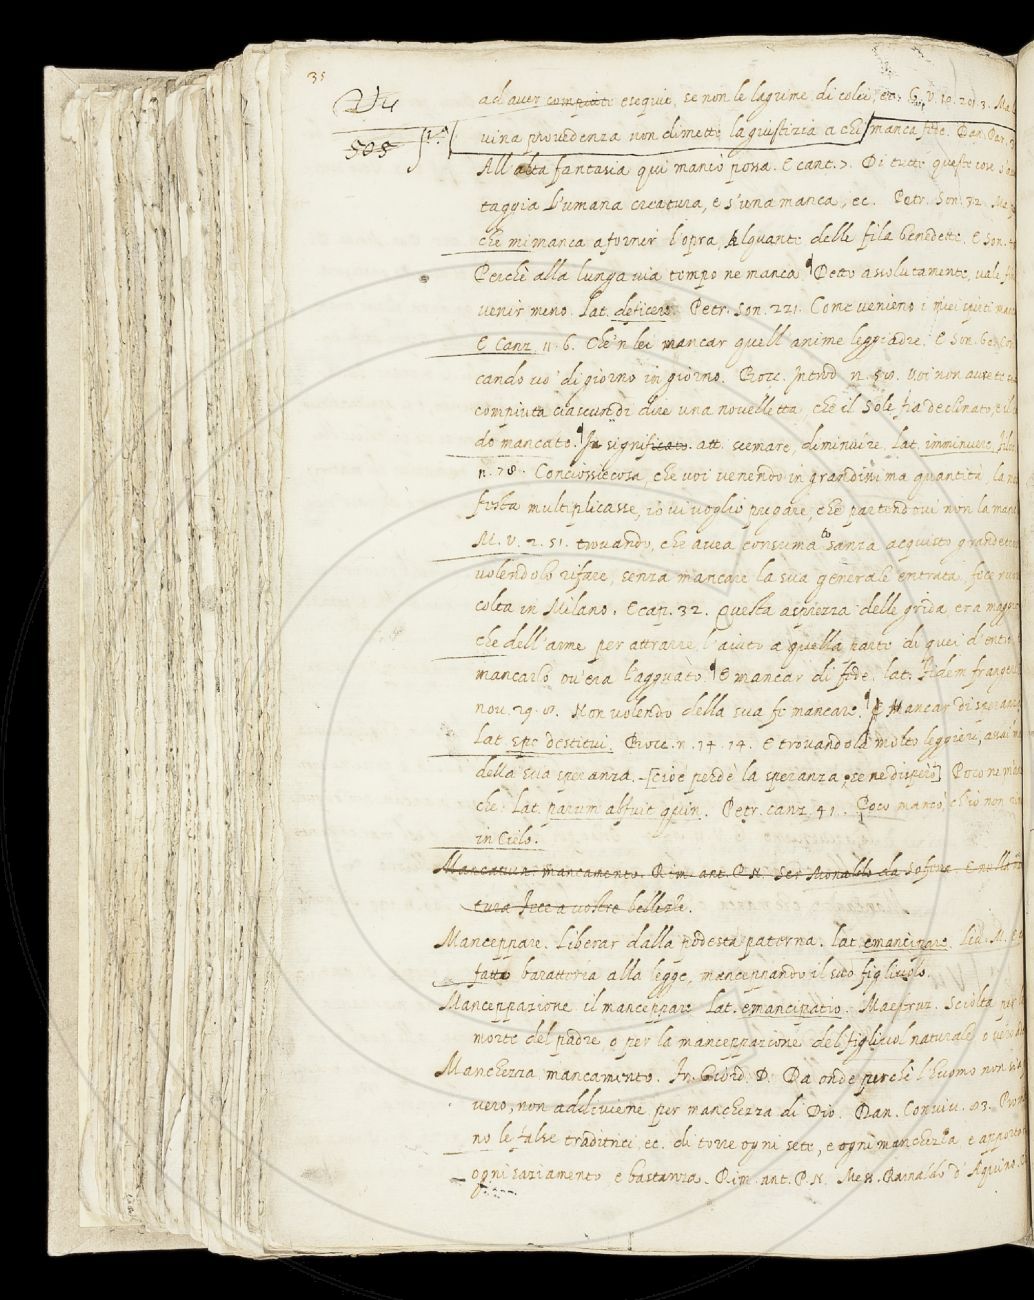 35
505
ad aver compiute esequie, se non le lagrime di colei, ec. G. V. 10. 20. 3.
vina provedenza non dimette la giustizia a chi manca fede. Dan. Par.
All' alta fantasia qui mancò possa. E cant. 7. Di tutte queste cose
taggia L'umana creatura, e s'una manca, ec. Petr. Son. 32.
che mi manca a fornir l'opra, Alquanto delle fila benedette. E Son.
Perchè alla lunga via tempo ne manca. Detto assolutamente, vale
venir meno. Lat. deficere. Petr. Son. 221. Come venieno i miei spirti
E Canz. 11. 6. Che 'n lei mancar quell' anime leggiadre. E Son.
cando vo' di giorno in giorno. Bocc. Introd. n. 58. Voi non avrete
compiuta ciascun di dire una novelletta, che il Sole fia declinato, e il
do mancato. In significato. att. scemare, diminuire. Lat. imminuere.
n. 78. Conciossiecosa, che voi venendo in grandissima quantità,
fosta multiplicasse, io vi voglio pregare, che partendovi non la
M. V. 2. 51. trovando, che avea consumato sanza acquisto grande
volendolo rifare, senza mancare la sua generale entrata, fece
colta in Milano. E cap. 32. Questa asprezza delle grida era
che dell' arme per attrarre l'aiuto a quella parte di quei d'entro
mancarlo ov' era l'agguato. E mancar di fede. lat. Fidem frangere
nov. 29. 8. Non volendo della sua fe mancare. E Mancar di speranza
Lat. spe destitui. Bocc. n. 14. 14. E trovandola molto leggieri, assai
della sua speranza. [cioè perdè la speranza, se ne disperò] Poco ne
che. Lat. parum abfuit quin. Petr. canz. 41. Poco mancò, ch'io non
in Cielo.
Mancatura. mancamento. Rim. ant. P. N. Ser Monaldo da Sofena. E nulla
tura Fece a vostre bellezze.
Manceppare. Liberar dalla podestà paterna. lat. emancipare.
fatto baratteria alla legge, manceppando il suo figliuolo.
Manceppazione. il manceppare. Lat. emancipatio. Maestruz. Sciolta per
morte del padre, o per la manceppazione del figliuol naturale, o
Manchezza. mancamento. Fr. Giord. D. Da onde perchè l'huomo non
vero, non addiviene per manchezza di Dio. Dan. Conviv. 83.
no le false traditrici, ec. di torre ogni sete, e ogni manchezza e apportar
ogni saziamento e bastanza. Rim. ant. P. N. Mes. Rainaldo d'Aquino.